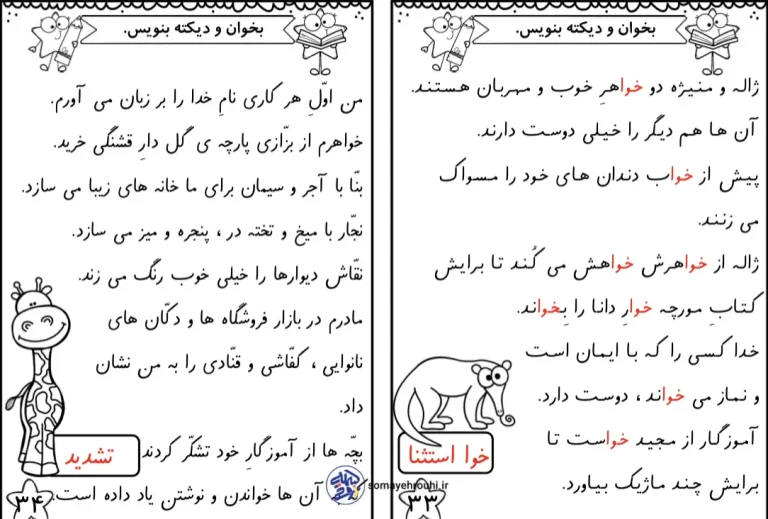 بخوان و دیکته بنویس.
ژاله و منیژه دو خواهرِ خوب و مهربان هستند.
آن ها هم دیگر را خیلی دوست دارند.
پیش از خواب دندان های خود را مسواک
می زنند.
ژاله از خواهرش خواهش می کُند تا برایش
کتابِ مورچه خوارِ دانا را بِخواند.
خدا کسی را که با ایمان است
و نماز می خواند، دوست دارد.
آموزگار از مجید خواست تا
برایش چند ماژیک بیاورد.
خوا استثنا
۳۳
بخوان و دیکته بنویس.
من اوّلِ هر کاری نامِ خدا را بر زبان می آورم.
خواهرم از بزّازی پارچه ی گل دارِ قشنگی خرید.
بنّا با آجر و سیمان برای ما خانه های زیبا می سازد.
نجّار با میخ و تخته در، پنجره و میز می سازد.
نقّاش دیوارها را خیلی خوب رنگ می زند.
مادرم در بازار فروشگاه ها و دکّان های
نانوایی، کفّاشی و قنّادی را به من نشان
داد.
بچّه ها از آموزگارِ خود تشکّر کردند
آن ها خواندن و نوشتن یاد داده است.
تشدید
۳۴
somayehrouhi.ir